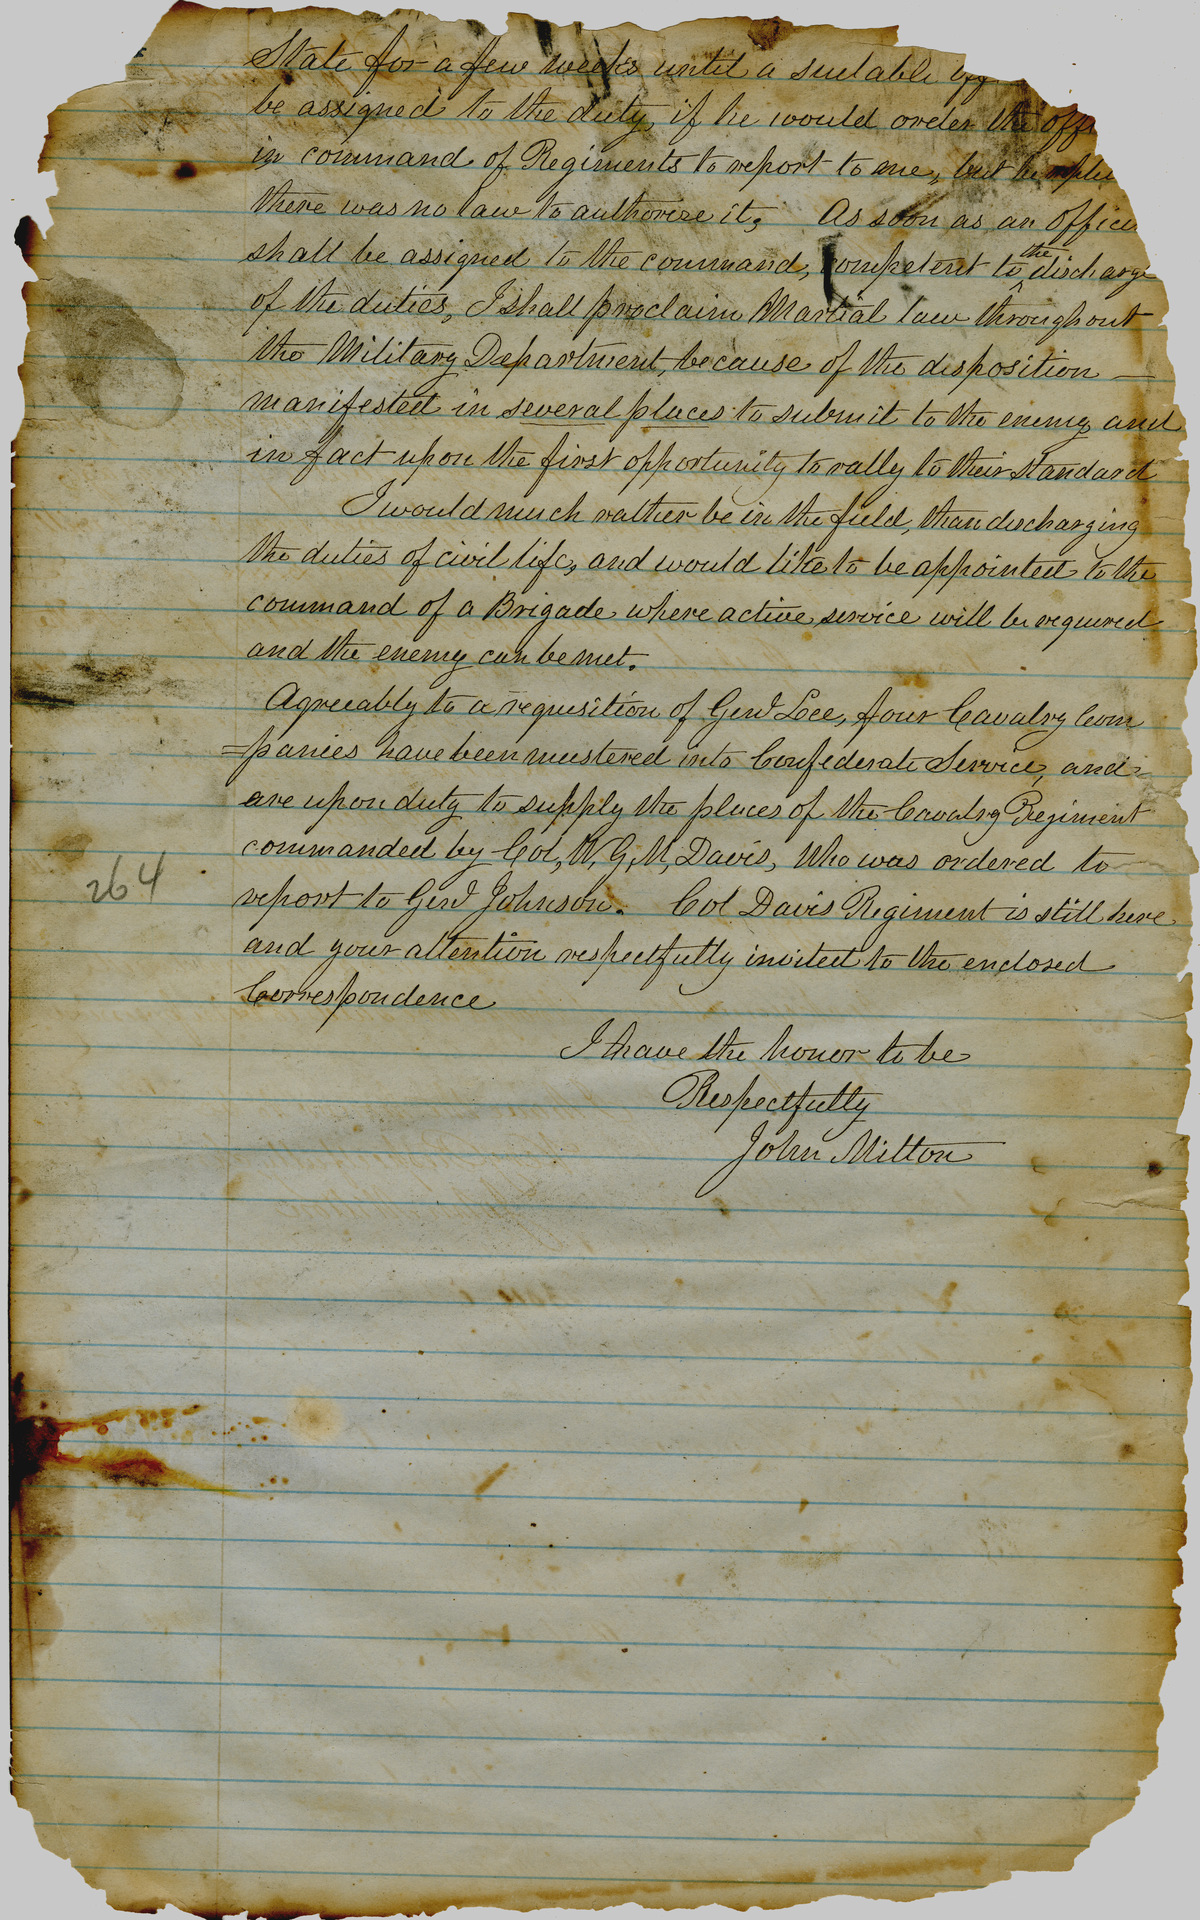 State for a few weeks until a suitable
be assigned to the duty, if he would order the
in command of Regiments to report to me, but he
there was no law to authorize it; As soon as an
shall be assigned to the command, competent to the discharge
of the duties, I shall proclaim Martial law throughout
the Military Department, because of the disposition —
manifested in several places to submit to the enemy and
in fact upon the first opportunity to rally to their standard
I would much rather be in the field, than discharging
the duties of civil life, and would like to be appointed to the
command of a Brigade where active service will be required
and the enemy can be met.
Agreeably to a requisition of Genl Lee, four Cavalry Com
=panies have been mustered into Confederate Service, and
are upon duty to supply the places of the Cavalry Regiment
commanded by Col, W, G, M, Davis, Who was ordered to
264
report to Genl Johnson. Col Davis Regiment is still here
and your attention respectfully invited to the enclosed
Correspondence
I have the honor to be
Respectfully
John Milton